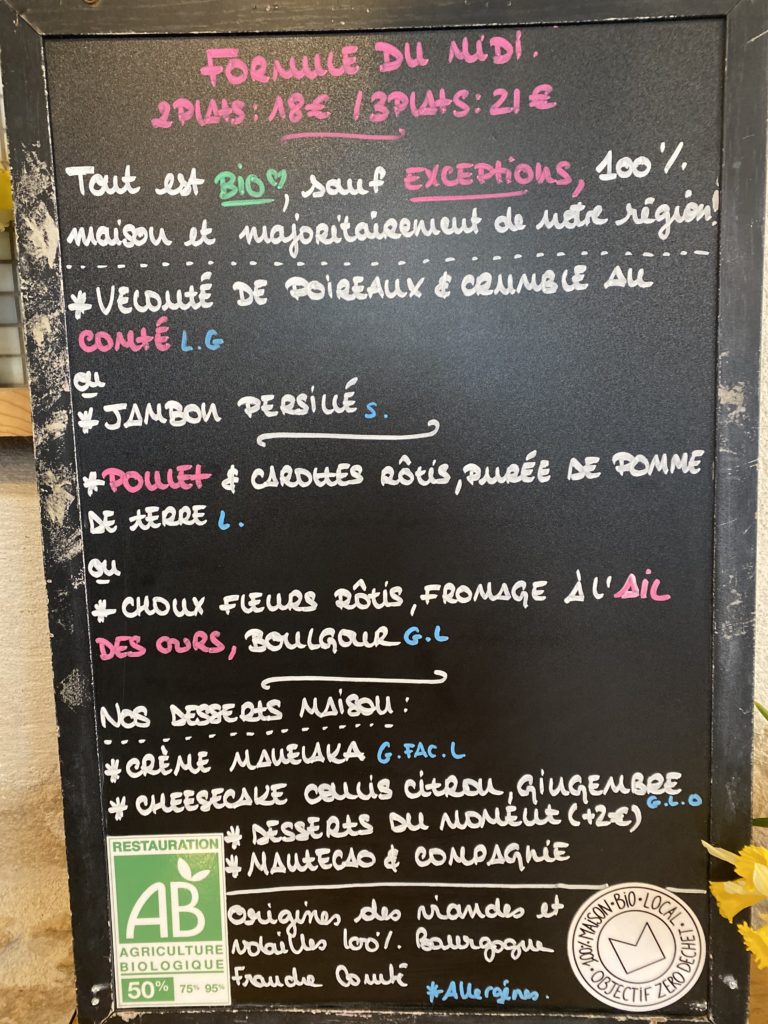 FORMULE DU MIDI.
2 PLATS : 18€ / 3 PLATS : 21€
Tout est BIO♡, sauf EXCEPTIONS, 100%
maison et majoritairement de notre région!
*VELOUTÉ DE POIREAUX & CRUMBLE AU
COMTÉ L.G
ou
*JAMBON PERSILLÉ S.
*POULET & CAROTTES RÔTIS, PURÉE DE POMME
DE TERRE L.
ou
*CHOUX FLEURS RÔTIS, FROMAGE À L'AIL
DES OURS, BOULGOUR G.L
NOS DESSERTS MAISON :
*CRÈME MAHELAKA G.FAC.L
*CHEESECAKE COULIS CITRON, GINGEMBRE
G.L.O
*DESSERTS DU MOMENT (+2€)
*MANTECAO & COMPAGNIE
RESTAURATION
AB
AGRICULTURE
BIOLOGIQUE
50% 75% 95%
Origines des viandes et
volailles 100% Bourgogne
Franche Comté
*Allergènes.
100% MAISON • BIO • LOCAL •
OBJECTIF ZÉRO DÉCHET •